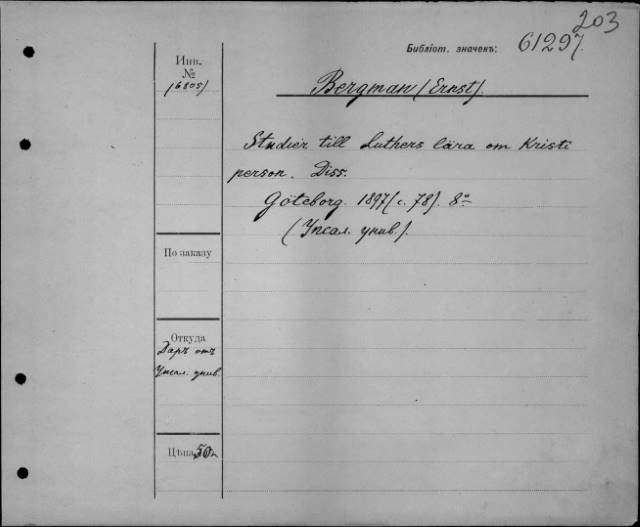 203
Библіот. значекъ: 61297
Инв.
№
16805)
Bergman (Ernst).
Studier till Luthers lära om Kristi
person. Diss.
Göteborg. 1897 (с. 78). 8°
(Упсал. унив.).
По заказу
Откуда
Даръ отъ
Упсал. унив.
Цѣна 50к